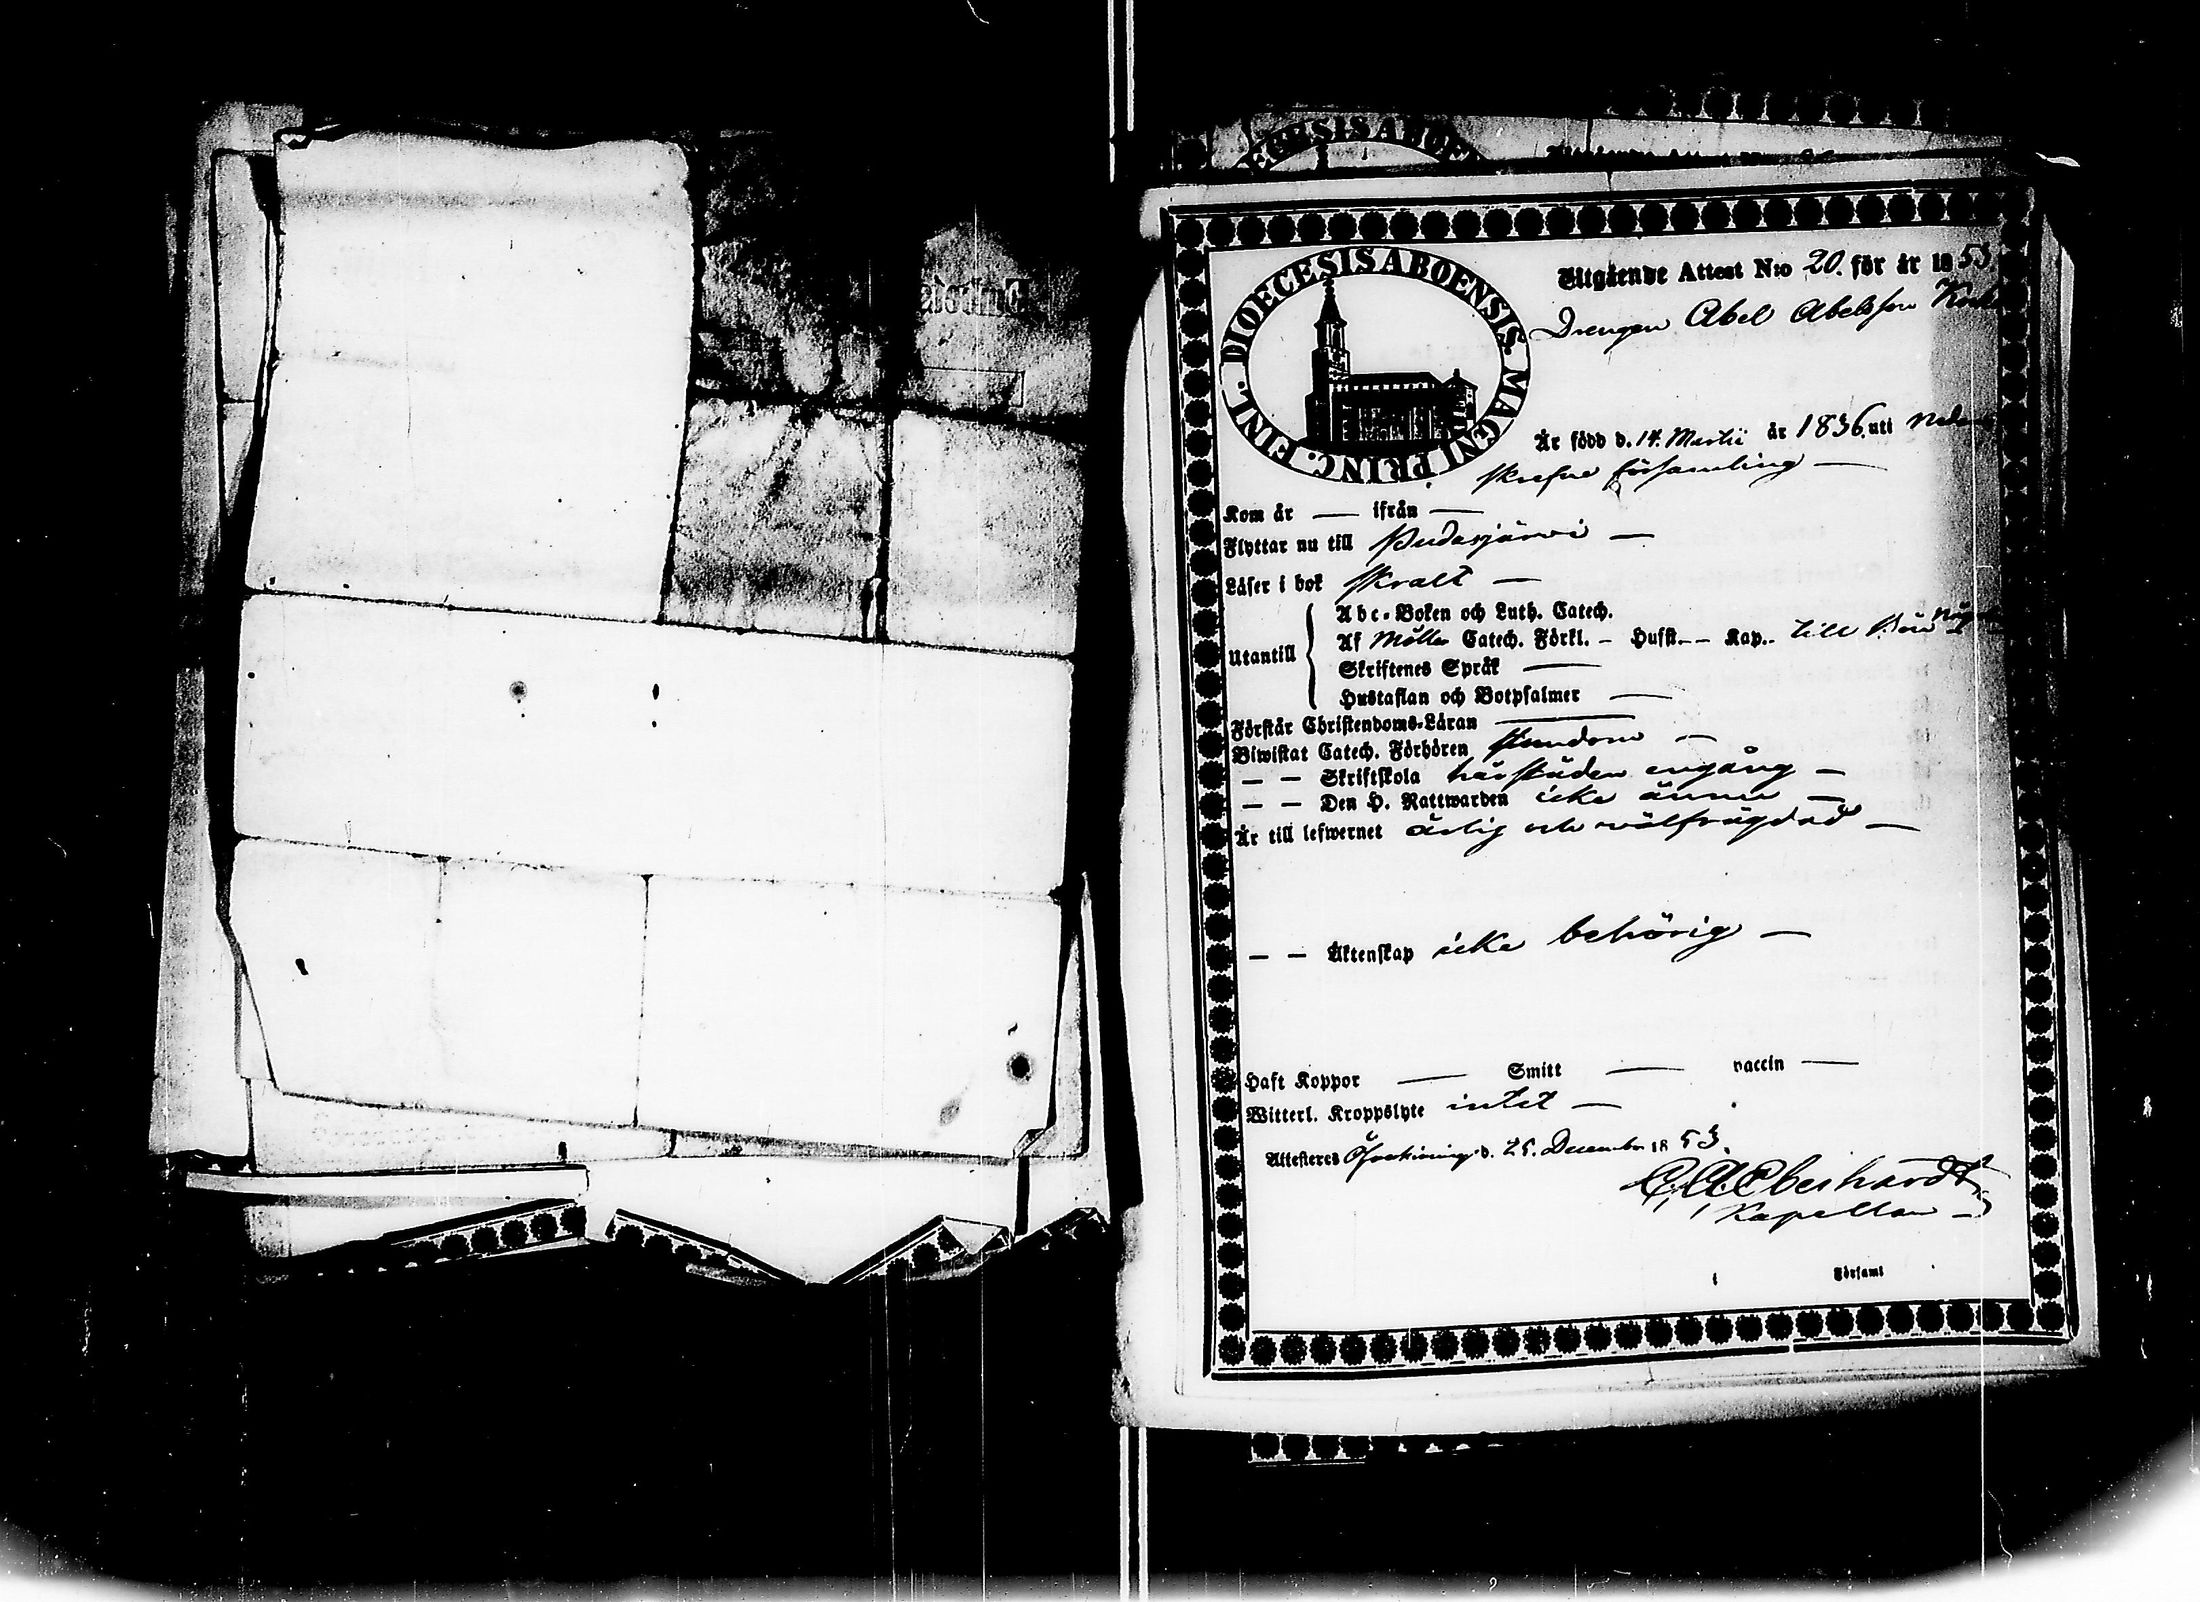 DIOECESIS ABOENSIS. MAGNI PRINC. FINL.
Utgående Attest N:o 20. för år 1853
Drengen Abel Abelsson
Är född d. 14. Martii år 1836. uti Neder
församling —
Kom år — ifrån —
Flyttar nu till Pudasjärvi —
Läser i bok svalt —
Utantill
Abc-Boken och Luth. Catech.
Af Möllers Catech. Förkl. — Husft. — Kap. till
Skriftenes Språk —
Hustaflan och Botpsalmer —
Förstår Christendoms-Läran —
Biwistat Catech. Förhören stundom —
— — Skriftskola härstädes engång —
— — Den H. Nattwarden icke ännu —
Är till lefwernet ärlig och välfrägdad —
— — Äktenskap icke behörig —
Haft Koppor — Smitt — vaccin —
Witterl. Kroppslyte intet —
Attesteres Öfvertorneå d. 25. December 1853.
C. A. Eberhardt
Kapellan
Församl